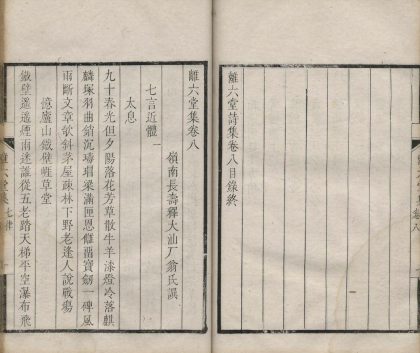 離六堂詩集卷八目錄終
離六堂集卷八
嶺南長壽釋大汕厂翁氏譔
七言近體一
太息
九十春光但夕陽落花芳草散牛羊漆燈冷落麒
麟塚羽曲銷沉瑇瑁梁滿匣恩讎留寶劍一碑風
雨斷文章欹斜茅屋疎林下野老逢人說戰場
憶廬山鐵壁崕草堂
鐵壁遥遥煙雨迷誰從五老踏天梯半空瀑布飛
離六堂集 七律